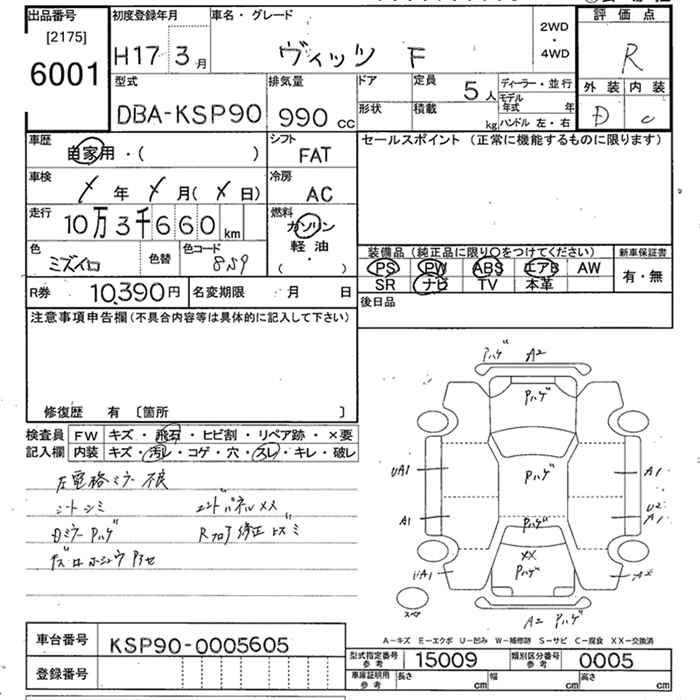 出品番号 初度登録年月 車名・グレード 評価点
[2175] H17 3月 ヴィッツ F 2WD・4WD R
6001 型式 排気量 ドア 定員 5人 ディーラー・並行 外装 内装
DBA-KSP90 990cc 形状 積載 kg モデル年式 年 D C
ハンドル 左・右
車歴 自家用・( ) シフト FAT セールスポイント (正常に機能するものに限ります)
車検 年 月( 日) 冷房 AC
走行 10万3千660km 燃料 ガソリン
軽油
・( )
色 ミズイロ 色替 色コード 8S9
装備品 (純正品に限り○をつけてください) 新車保証書
PS PW ABS エアB AW 有・無
SR ナビ TV 本革
R券 10,390円 名変期限 月 日 後日品
注意事項申告欄 (不具合内容等は具体的に記入して下さい)
修復歴 有 〔箇所 〕
検査員 FW キズ・飛石・ヒビ割・リペア跡・×要
記入欄 内装 キズ・汚レ・コゲ・穴・スレ・キレ・破レ
左電格ミラー不良
シートシミ エンドパネルメス
Dミラー Pハゲ Rフロア修正
Pハゲ A2
Pハゲ
UA1 Pハゲ A1
A1 Pハゲ U2 A1
XX
UA1 Pハゲ A2
スペア
A2 Pハゲ
A-キズ E-エクボ U-凹み W-補修跡 S-サビ C-腐食 XX-交換済
車台番号 KSP90-0005605
登録番号
型式指定番号 参考 15009 類別区分番号 参考 0005
車庫証明用 参考 長さ cm 幅 cm 高さ cm